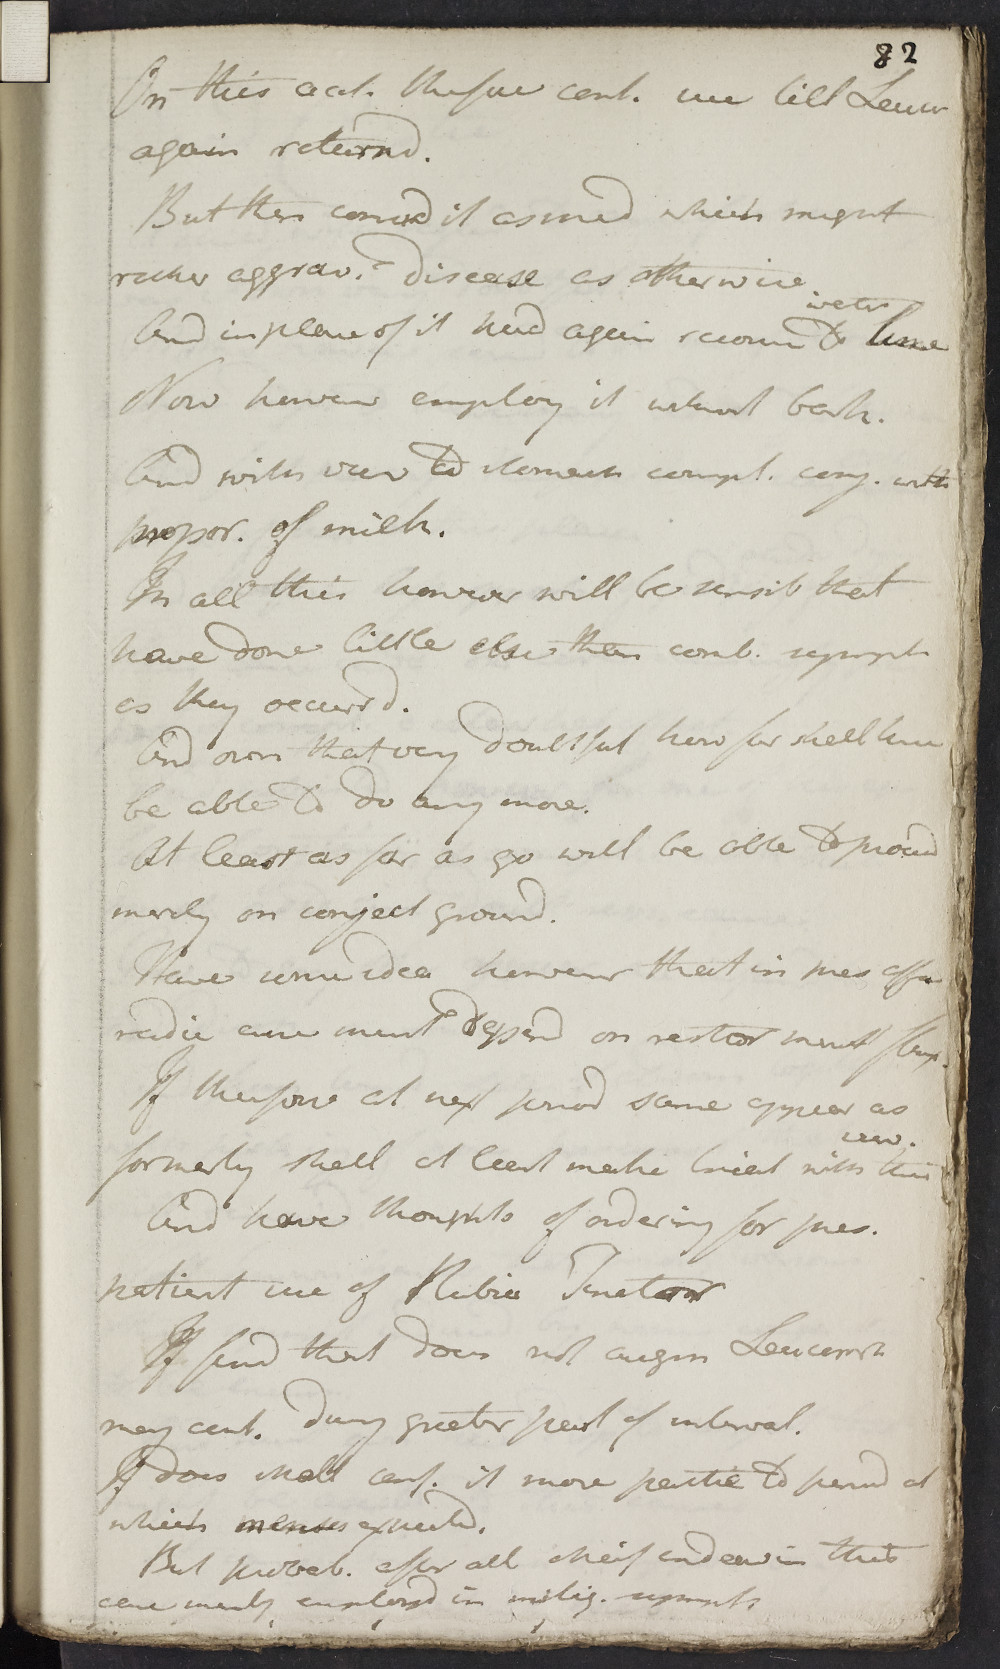 82
On this acct. therfore cont. use till Leucor
again returnd.
But then consid it as med which might
rather aggrav. disease as otherwise
water
And in place of it had again recourse to lime
Now however employ it without bark.
And with view to stomach compl. conj. with
propor. of milk.
In all this however will be sensib that
have done little else than comb. sympt
as they occurrd.
And own that very doubtful how far shall
be able to do any more.
At least as far as go will be able to proceed
merely on conject ground.
Have some idea however that in pres affec
radic cure must depend on restor menst
If therfore at next period same appear as
view.
formerly shall at least make trial with this
And have thoughts of ordering for pres.
patient use of Rubia Tinctor
If find that does not augm Leucorrh
may cont. during greater part of interval.
If does shall conf. it more partic to period at
which menses expected.
But probab. after all cheif endeav in this
case merely employd in mitig. sympts